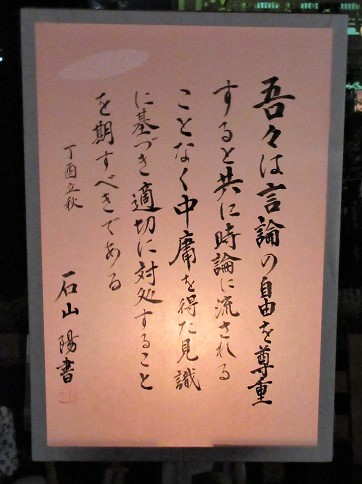 吾々は言論の自由を尊重
すると共に時論に流される
ことなく中庸を得た見識
に基づき適切に対処すること
を期すべきである
丁酉立秋
石山陽書